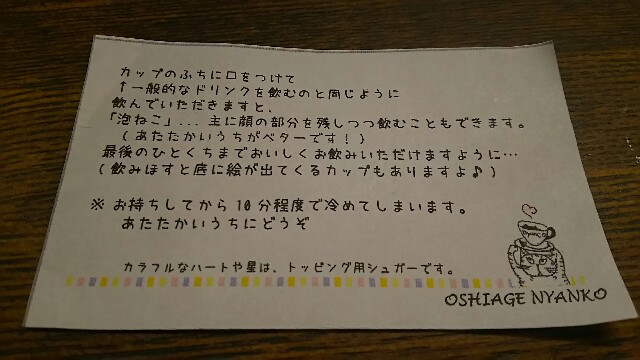 カップのふちに口をつけて
↑一般的なドリンクを飲むのと同じように
飲んでいただきますと、
「泡ねこ」... 主に顔の部分を残しつつ飲むこともできます。
(あたたかいうちがベターです！)
最後のひとくちまでおいしくお飲みいただけますように…
(飲みほすと底に絵が出てくるカップもありますよ♪)
※ お持ちしてから10分程度で冷めてしまいます。
あたたかいうちにどうぞ
カラフルなハートや星は、トッピング用シュガーです。
OSHIAGE NYANKO